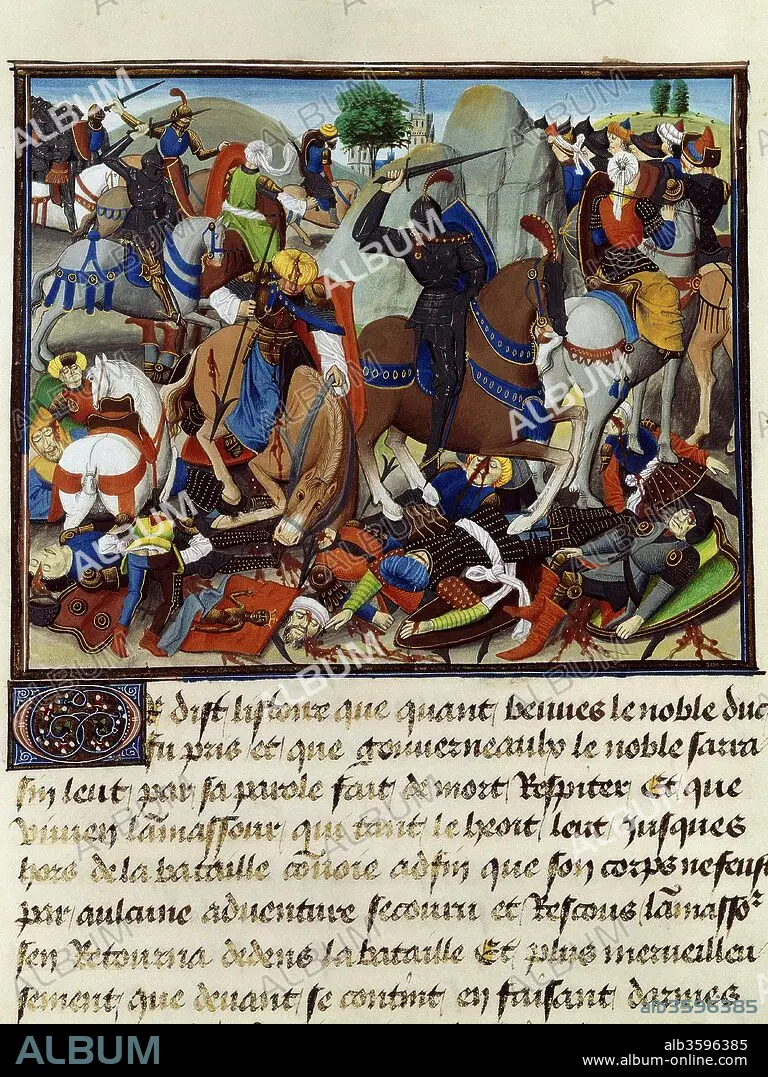 Et dist listoire que quant beuues le noble duc
fu pris et que gouuerneaulx le noble sarra
sin leut par sa parole fait de mort Respiter Et que
viuien lamassour qui tant le heoit leut Jusques
hors de la bataille adfin que son corps ne feust
par aulcune aduenture secouru et Rescous lamasso
sen Retourna dedens la bataille Et plus merueilleu
sement que deuant se contint en faisant darmes
ALBUM
alb3596385
ALBUM
alb3596385
www.album-online.com